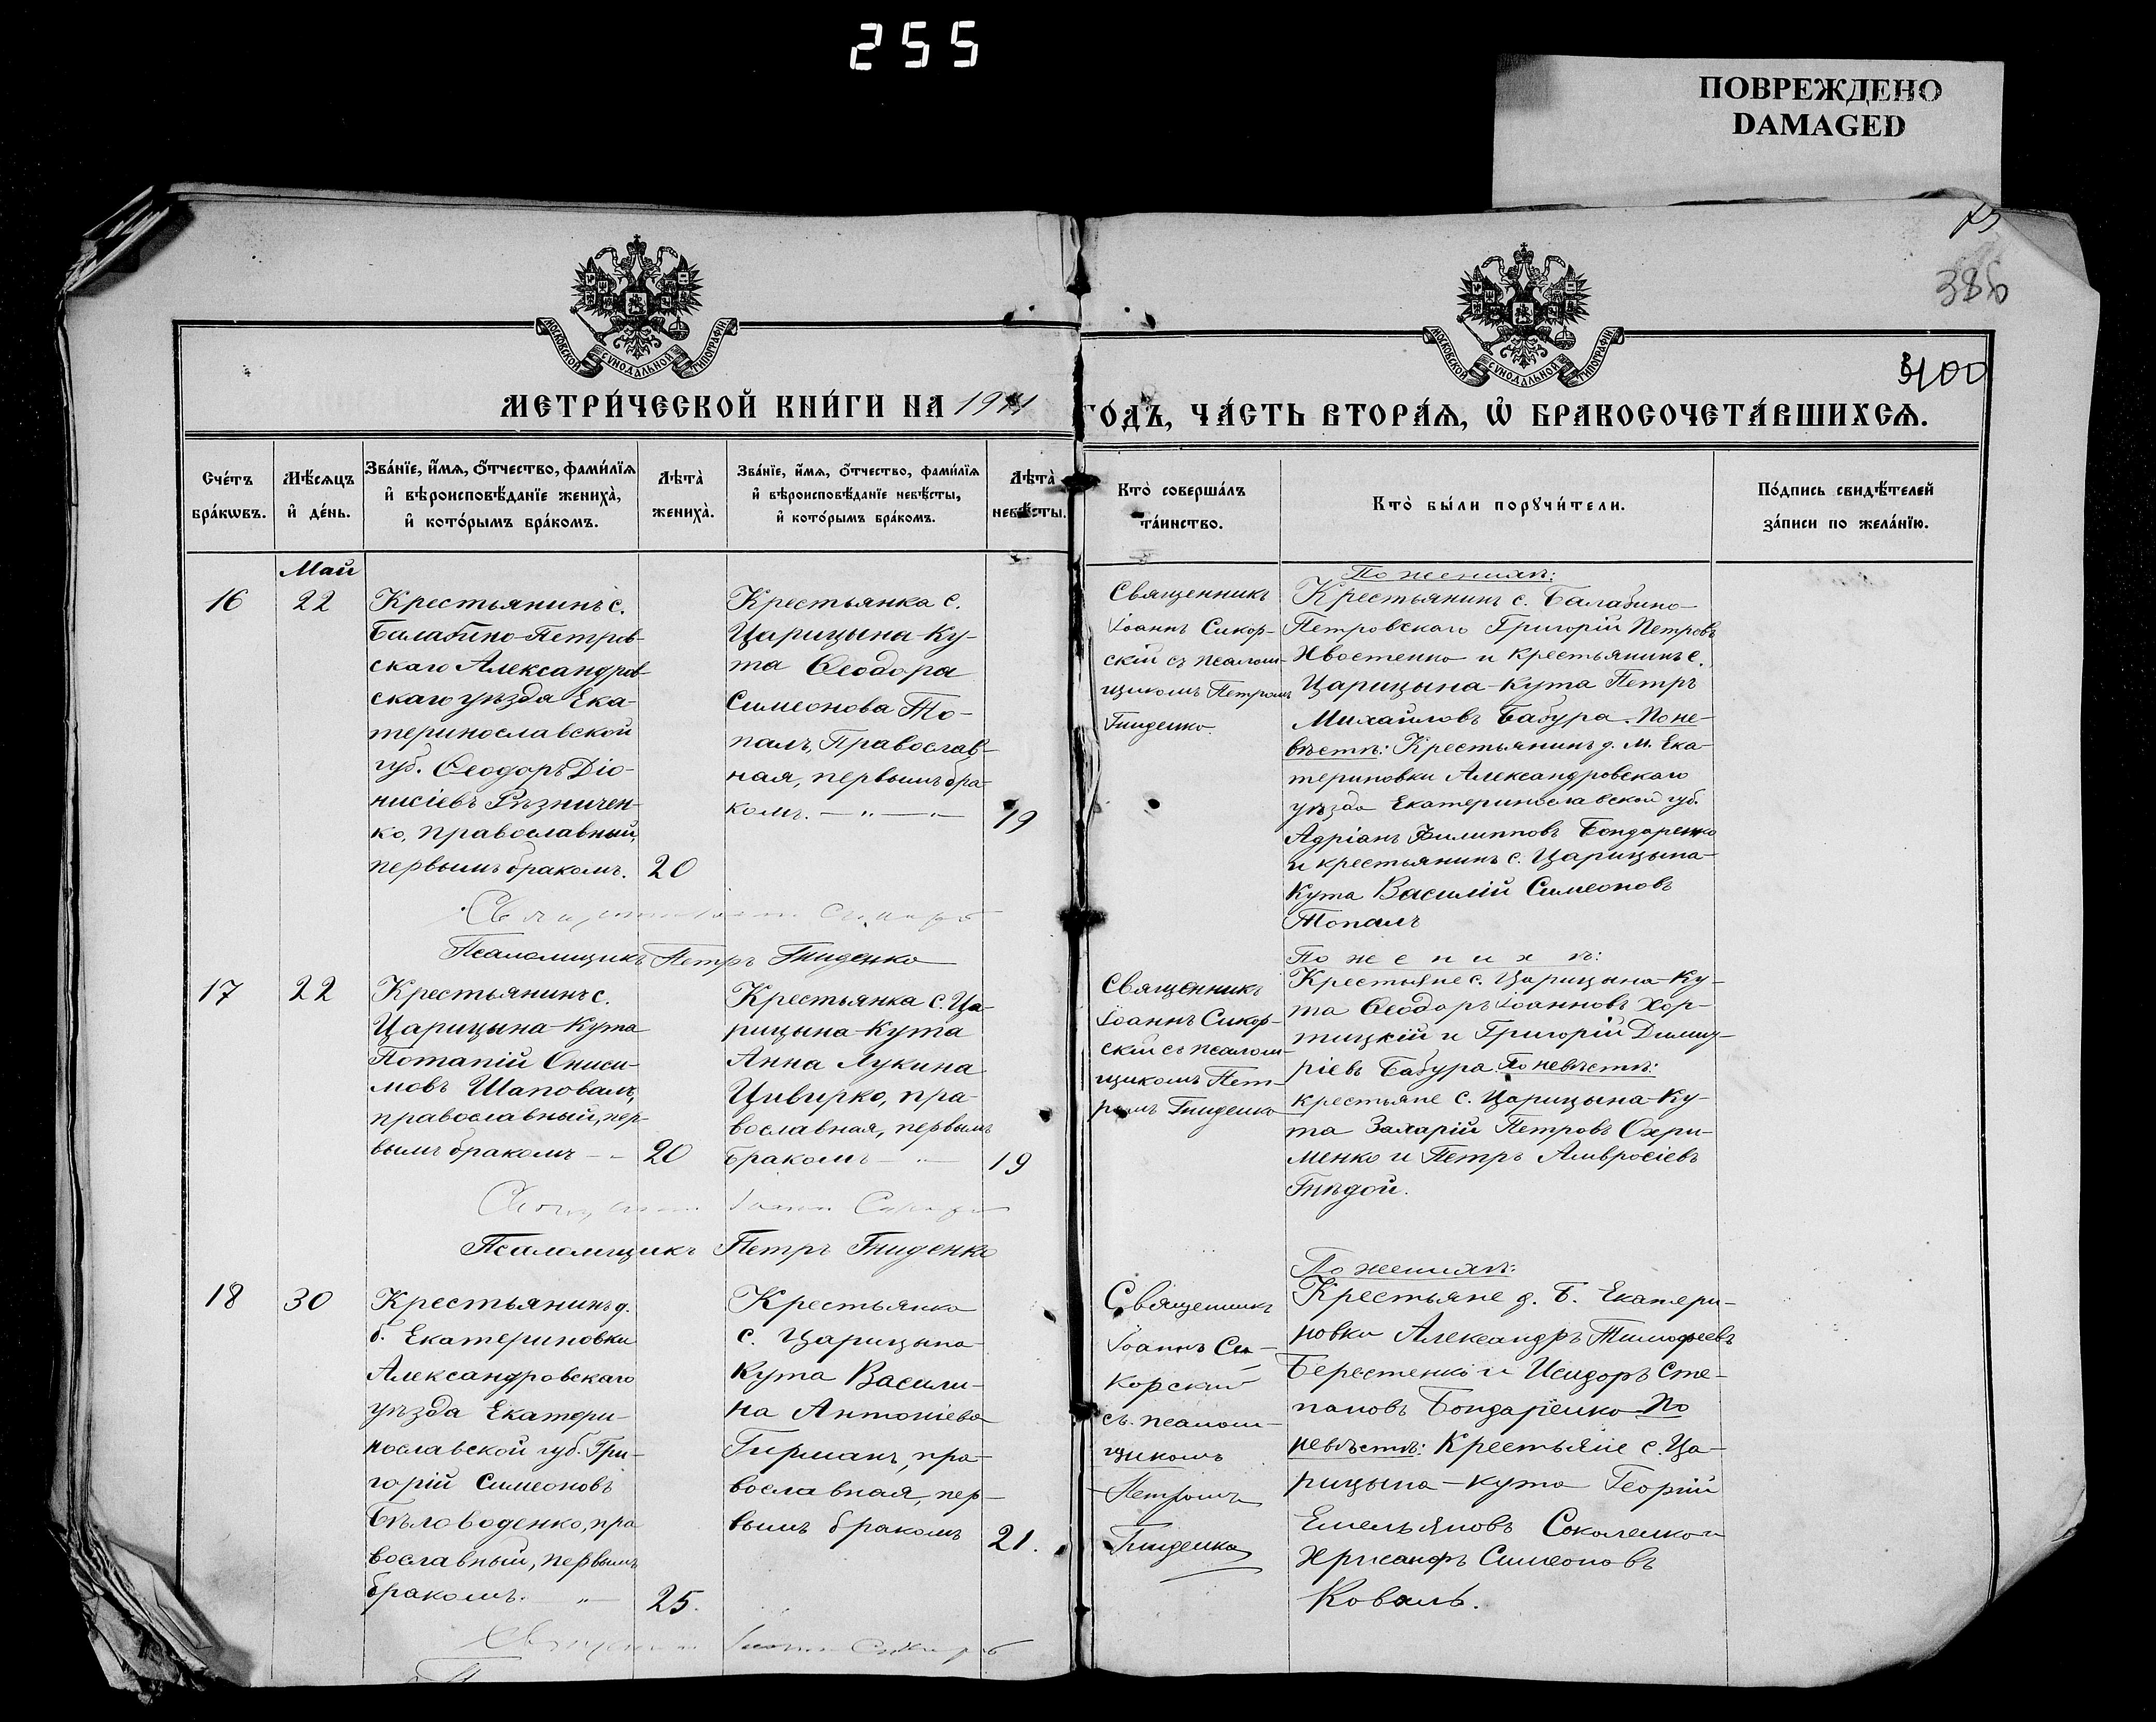 255
ПОВРЕЖДЕНО
DAMAGED
386
МОСКОВСКОЙ СѴНОДАЛЬНОЙ ТИПОГРАФІИ
МОСКОВСКОЙ СѴНОДАЛЬНОЙ ТИПОГРАФІИ
МЕТРИ́ЧЕСКОЙ КНИ́ГИ НА 1911
ГО́ДЪ, ЧА́СТЬ ВТОРА́Ѧ, Ѡ҆ БРАКОСОЧЕТА́ВШИХСѦ.
Сче́тъ
бра́кѡвъ.
Мѣ́сѧцъ
и҆ де́нь.
Зва́нїе, и҆́мѧ, ѻ҆́тчество, фами́лїѧ
и҆ вѣроисповѣ́данїе жениха̀,
и҆ кото́рымъ бра́комъ.
Лѣ́та̀
жениха̀.
Зва́нїе, и҆́мѧ, ѻ҆́тчество, фами́лїѧ
и҆ вѣроисповѣ́данїе невѣ́сты,
и҆ кото́рымъ бра́комъ.
Лѣ́та̀
невѣ́сты.
Кто̀ соверша́лъ
та́инство.
Кто̀ бы́ли порꙋчи́тели.
По́дпись свидѣ́телей
за́писи по жела́нїю.
Май
16
22
Крестьянинъ с.
Балабино-Петров-
скаго Александров-
скаго уѣзда Ека-
теринославской
губ. Ѳеодоръ Діо-
нисіевъ Рѣзничен-
ко, православный,
первымъ бракомъ.
20
Крестьянка с.
Царицына-Ку-
та Ѳеодора
Симеонова То-
палъ, Православ-
ная, первымъ бра-
комъ. — „ — „ —
19
Священникъ
Іоаннъ Сикор-
скій съ псалом-
щикомъ Петромъ
Гниденко.
По женихѣ:
Крестьянинъ с. Балабино-
Петровскаго Григорій Петровъ
Хвостенко и крестьянинъ с.
Царицына-Кута Петръ
Михайловъ Бабура. По не-
вѣстѣ: Крестьянинъ д. М. Ека-
териновки Александровскаго
уѣзда Екатеринославской губ.
Адріанъ Филипповъ Бондаренко
и крестьянинъ с. Царицына-
Кута Василій Симеоновъ
Топалъ
Псаломщикъ Петръ Гниденко
17
22
Крестьянинъ с.
Царицына-Кута
Потапій Ониси-
мовъ Шаповалъ,
православный, пер-
вымъ бракомъ — -
20
Крестьянка с. Ца-
рицына-Кута
Анна Лукина
Цивирко, пра-
вославная, первымъ
бракомъ — „ —
19
Священникъ
Іоаннъ Сикор-
скій съ псалом-
щикомъ Пет-
ромъ Гниденко
По женихѣ:
Крестьяне с. Царицына-Ку-
та Ѳеодоръ Іоанновъ Хор-
тицкій и Григорій Димит-
ріевъ Бабура. По невѣстѣ:
крестьяне с. Царицына-Ку-
та Захарій Петровъ Охри-
менко и Петръ Амвросіевъ
Гнѣдой.
Псаломщикъ Петръ Гниденко
18
30
Крестьянинъ д.
Б. Екатериновки
Александровскаго
уѣзда Екатери-
нославской губ. Гри-
горій Симеоновъ
Бѣловоденко, пра
вославный, первымъ
бракомъ. „ —
25.
Крестьянка
с. Царицына-
Кута Васили-
на Антоніева
Гирманъ, пра-
вославная, пер-
вымъ бракомъ
21.
Священникъ
Іоаннъ Си-
корскій
съ псалом-
щикомъ
Петромъ
Гниденко
По женихѣ:
Крестьяне д. Б. Екатери-
новки Александръ Тимофеевъ
Берестенко и Исидоръ Сте-
пановъ Бондаренко По
невѣстѣ: Крестьяне с. Ца-
рицына-Кута Георгій
Емельяновъ Соколенко и
Хрисанфъ Симеоновъ
Коваль.